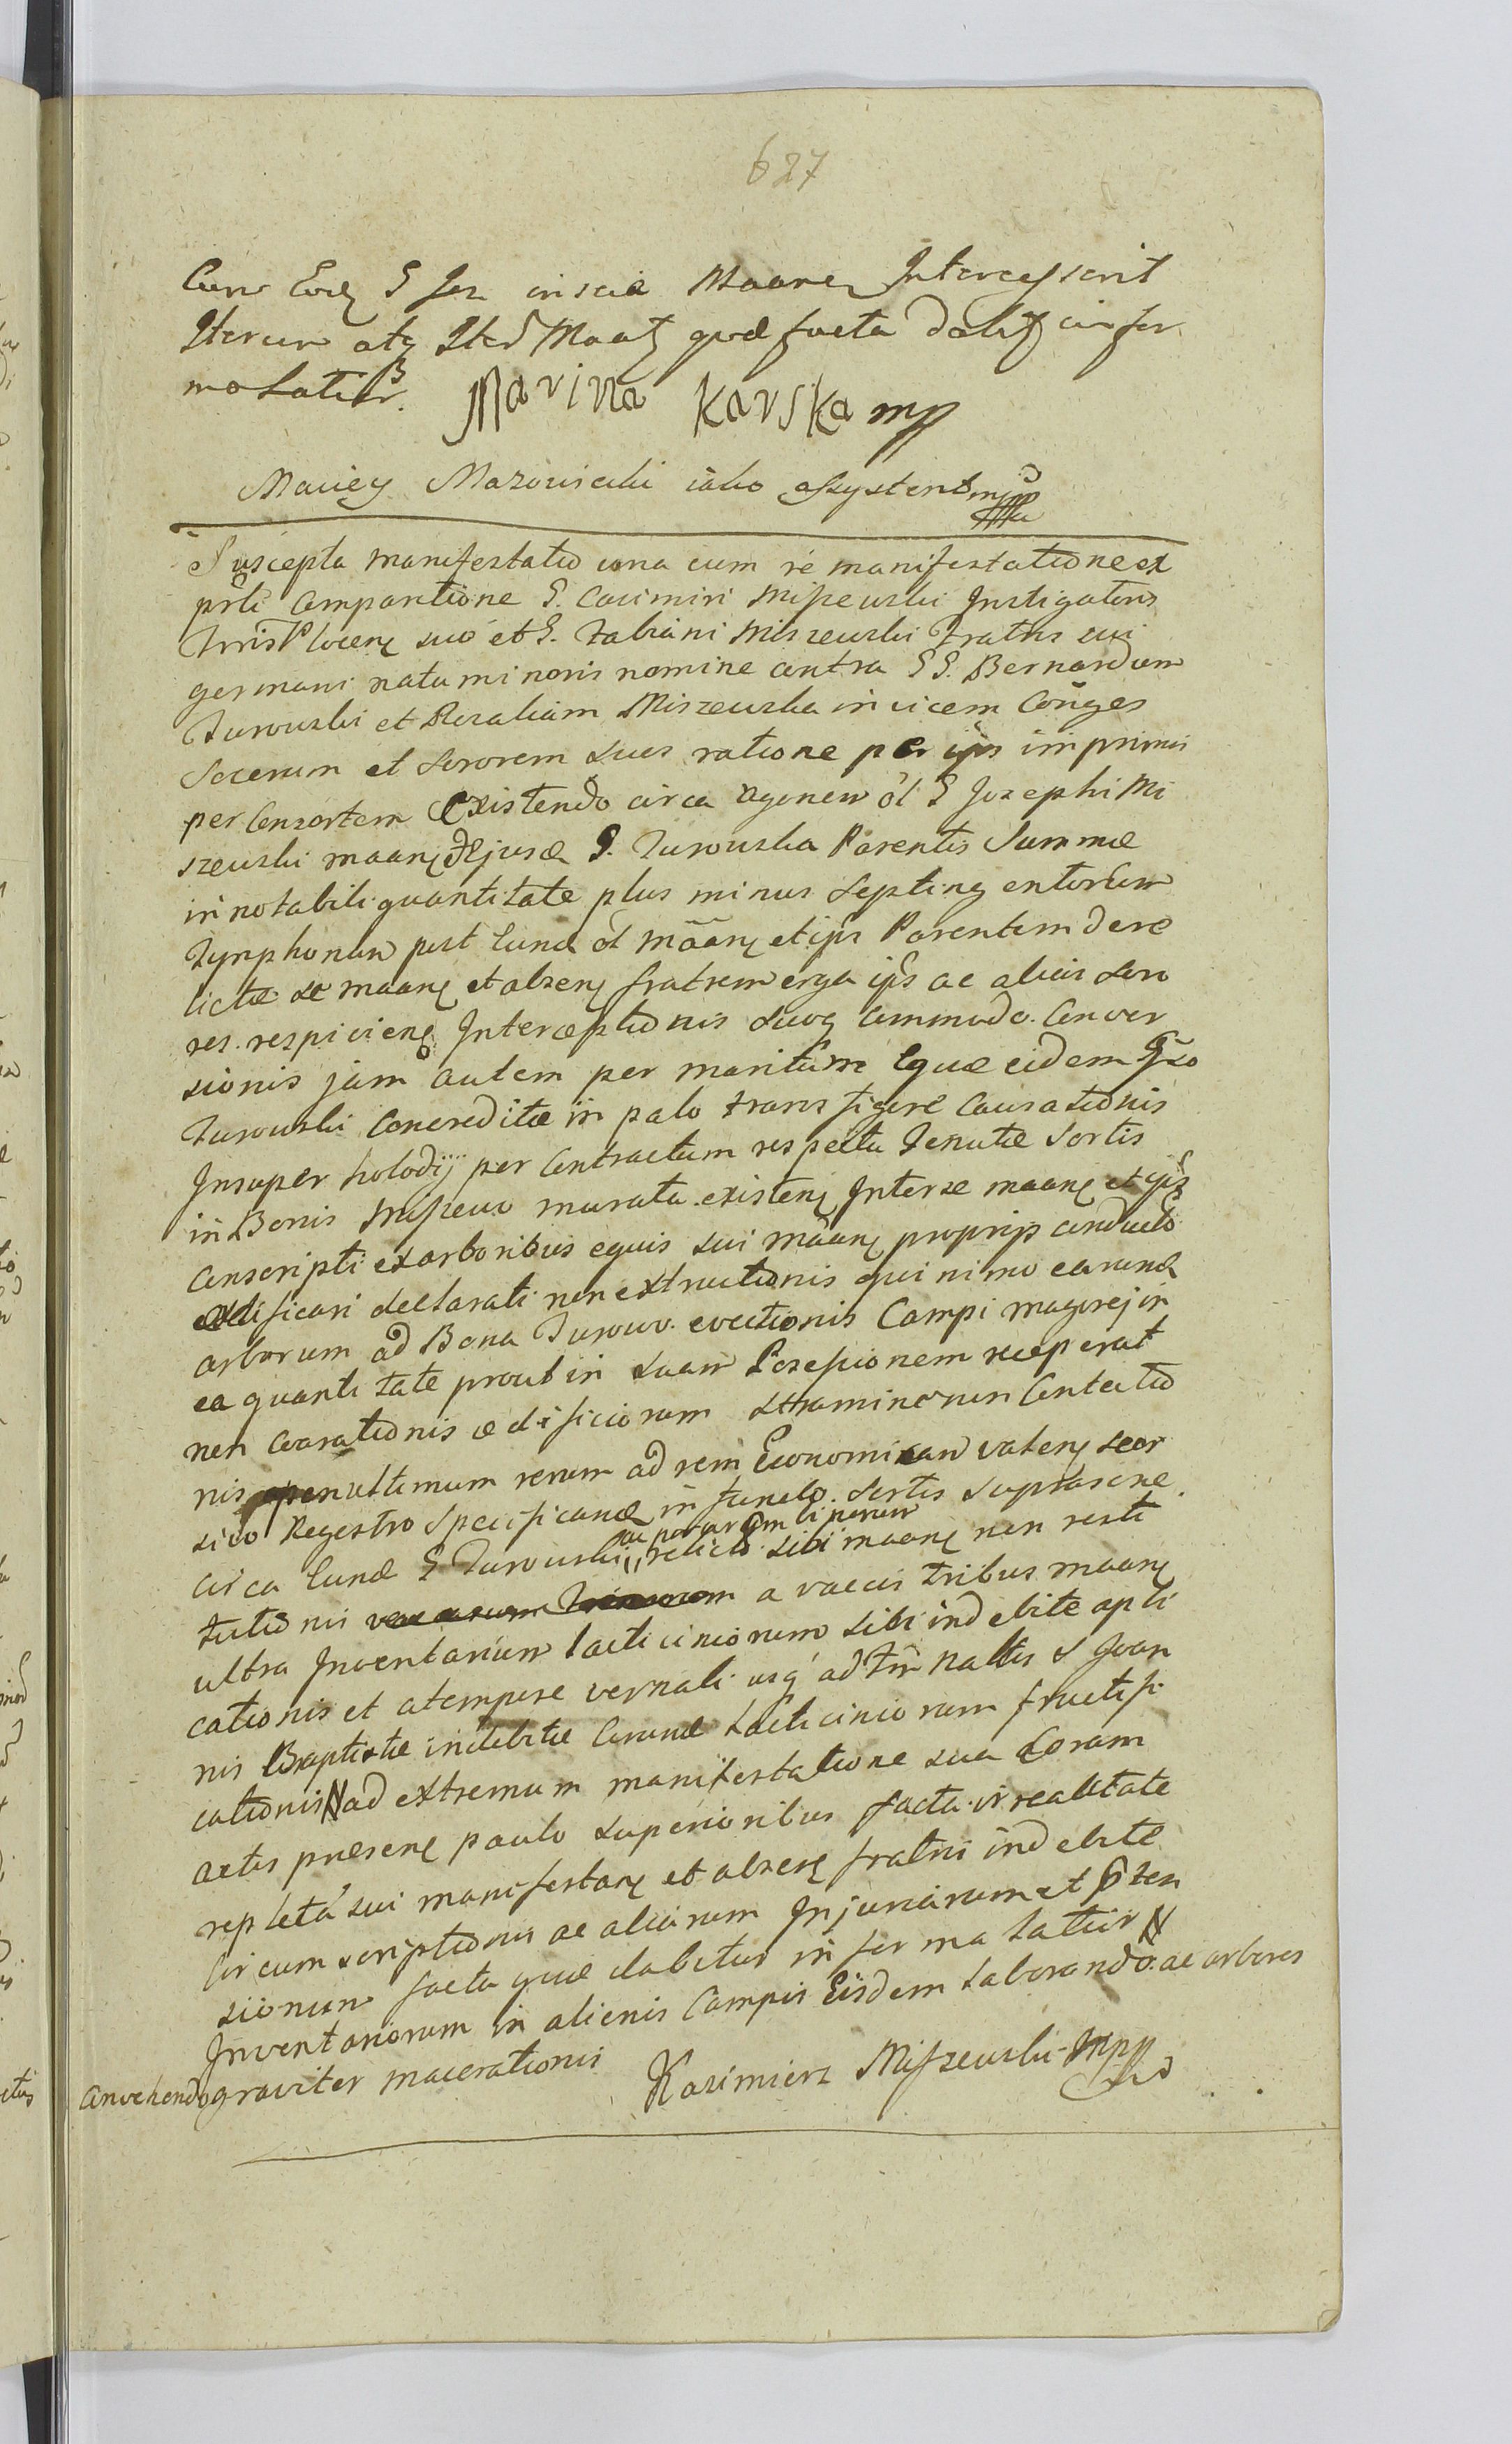 627
Cum Eod G Joz inscia Maane Intercesserit
Iterum atq Iter Maat qua facta dabit infor
matur. Marina Karska mp
Maciey Mazowiecki iako assystent mpp
Suscepta manifestatio una cum re manifestatione ex
prsti Comparitione G. Casimiri Miszewski Instigatoris
Plocen suo et G. Fabiani Miszewski Fratris sui
germani natu minoris nomine contra GG. Bernardum
Turowski et Rozaliam Miszewska invicem Conges
Socerum et Sororem suos ratione per ips imprimis
per Consortem Existendo circa agonem ol G Josephi Mi
szewski maanq Turowska Parentis Summæ
in notabili quantitate plus minus Septingentorum
Tymphonum post Eund ol mãanq et ips Parentem dere
lictæ se maanq et absenq fratrem erga ips ac alias Soro
res respicienq Interceptionis Suoq commodo Conver
sionis jam autem per maritum Equæ eidem Gso
Turowski Concreditæ in palo transfigere Causationis
Insuper holodij per Contractum respectu Tenutæ Sortis
in Bonis Miszewo murata existenq Interse maanq et ips
Conscripti ex arboribus equis sui mãanq proprijs conducto
ædificari declarati non extructionis quinimo earund
arborum ad Bona Turowo evectionis Campi magorej in
ea quantitate prout in suam Possessionem receperat
non aarationis ædificiorum stramine non Contectio
nis penultimum rerum ad rem Economicam valenq seor
sivo Regestro Specificand in fundo Sortis Suprascrie
circa Eund G Turowski relicto sibi maanq non resti
tutionis a vaccis tribus maanq
ultra Inventarium lacticiniorum sibi indebite apli
cationis et a tempore vernali usq ad Fm Naltis S Joan
nis Baptistæ indebitæ Earund Lacticiniorum fructifi
cationis ad extremum manifestatione sua Coram
actis præsenq paulo superioribus facta irrealitate
repleta sui manifestanq et absenq fratri indebite
Circumscriptionis ac aliarum Injuriarum et
sionum facta quæ dabitur informatur
Inventariorum in alienis Campis Eisdem Laborando ac arbores
Convehendo graviter macerationis Kazimierz Miszewski mpp